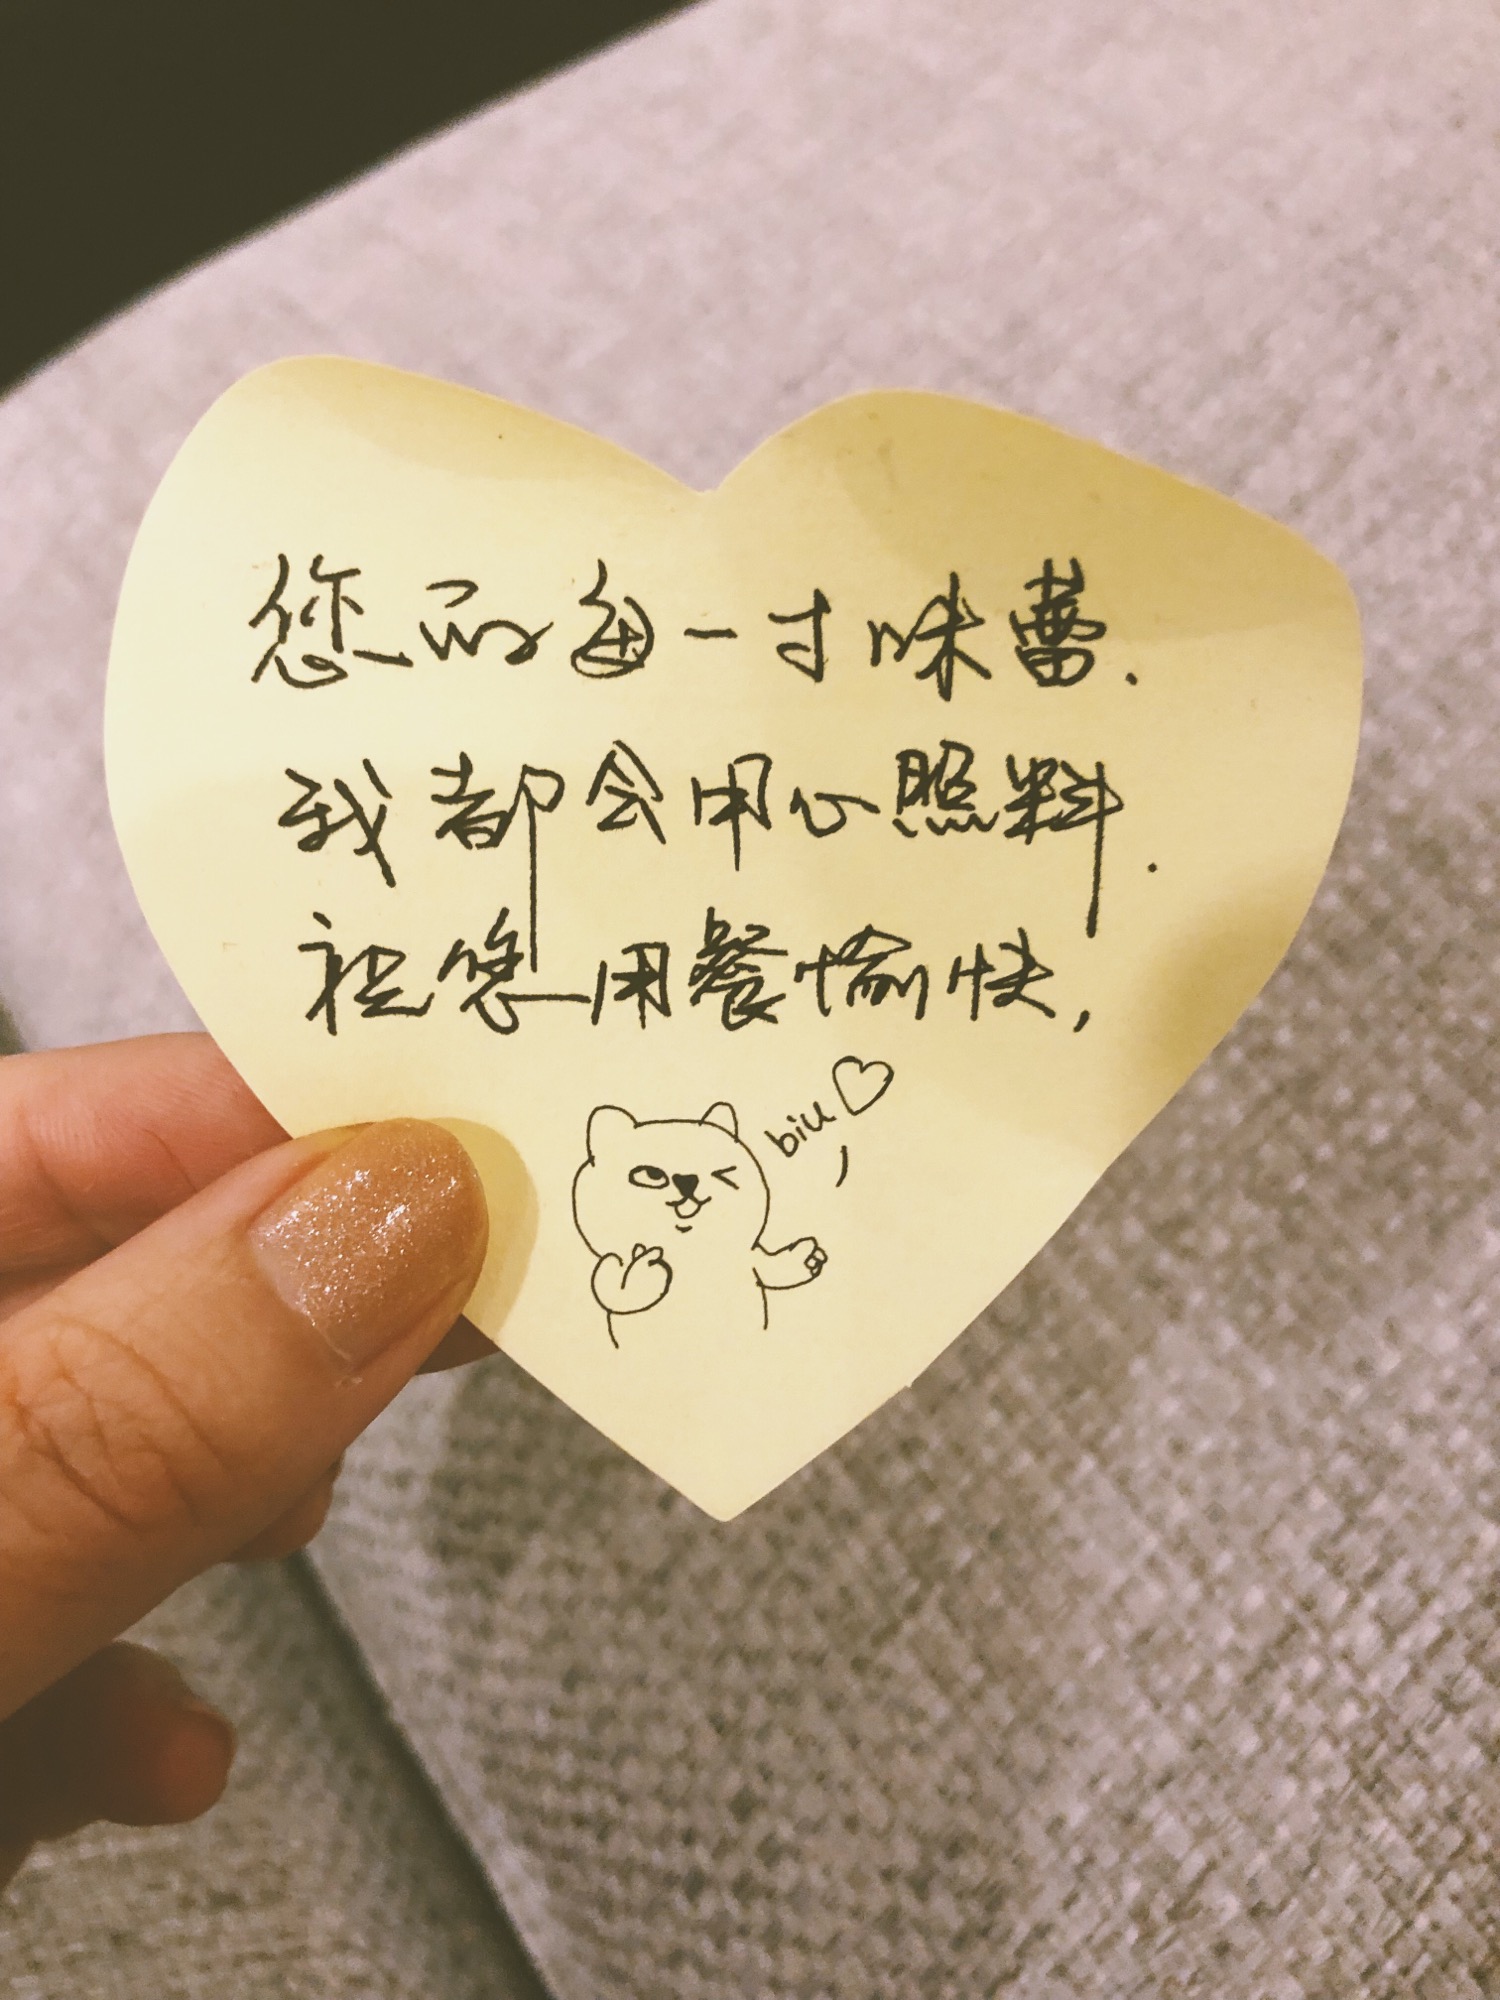 您的每一寸味蕾.
我都会用心照料.
祝您用餐愉快,
biu